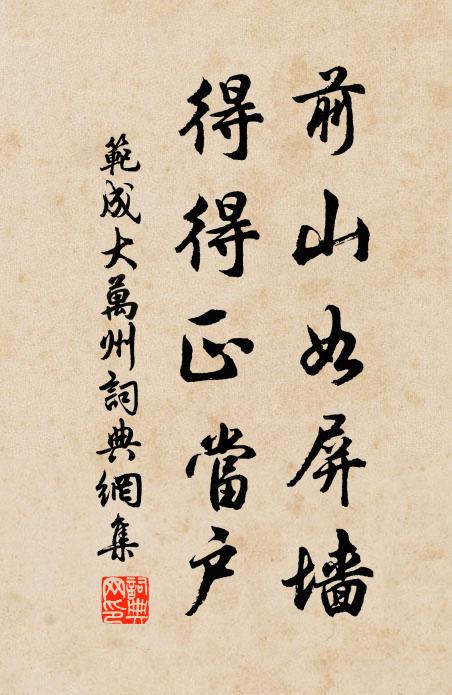 前山如屏墙
得得正當户
範成大萬州詞典網集
詞典網印